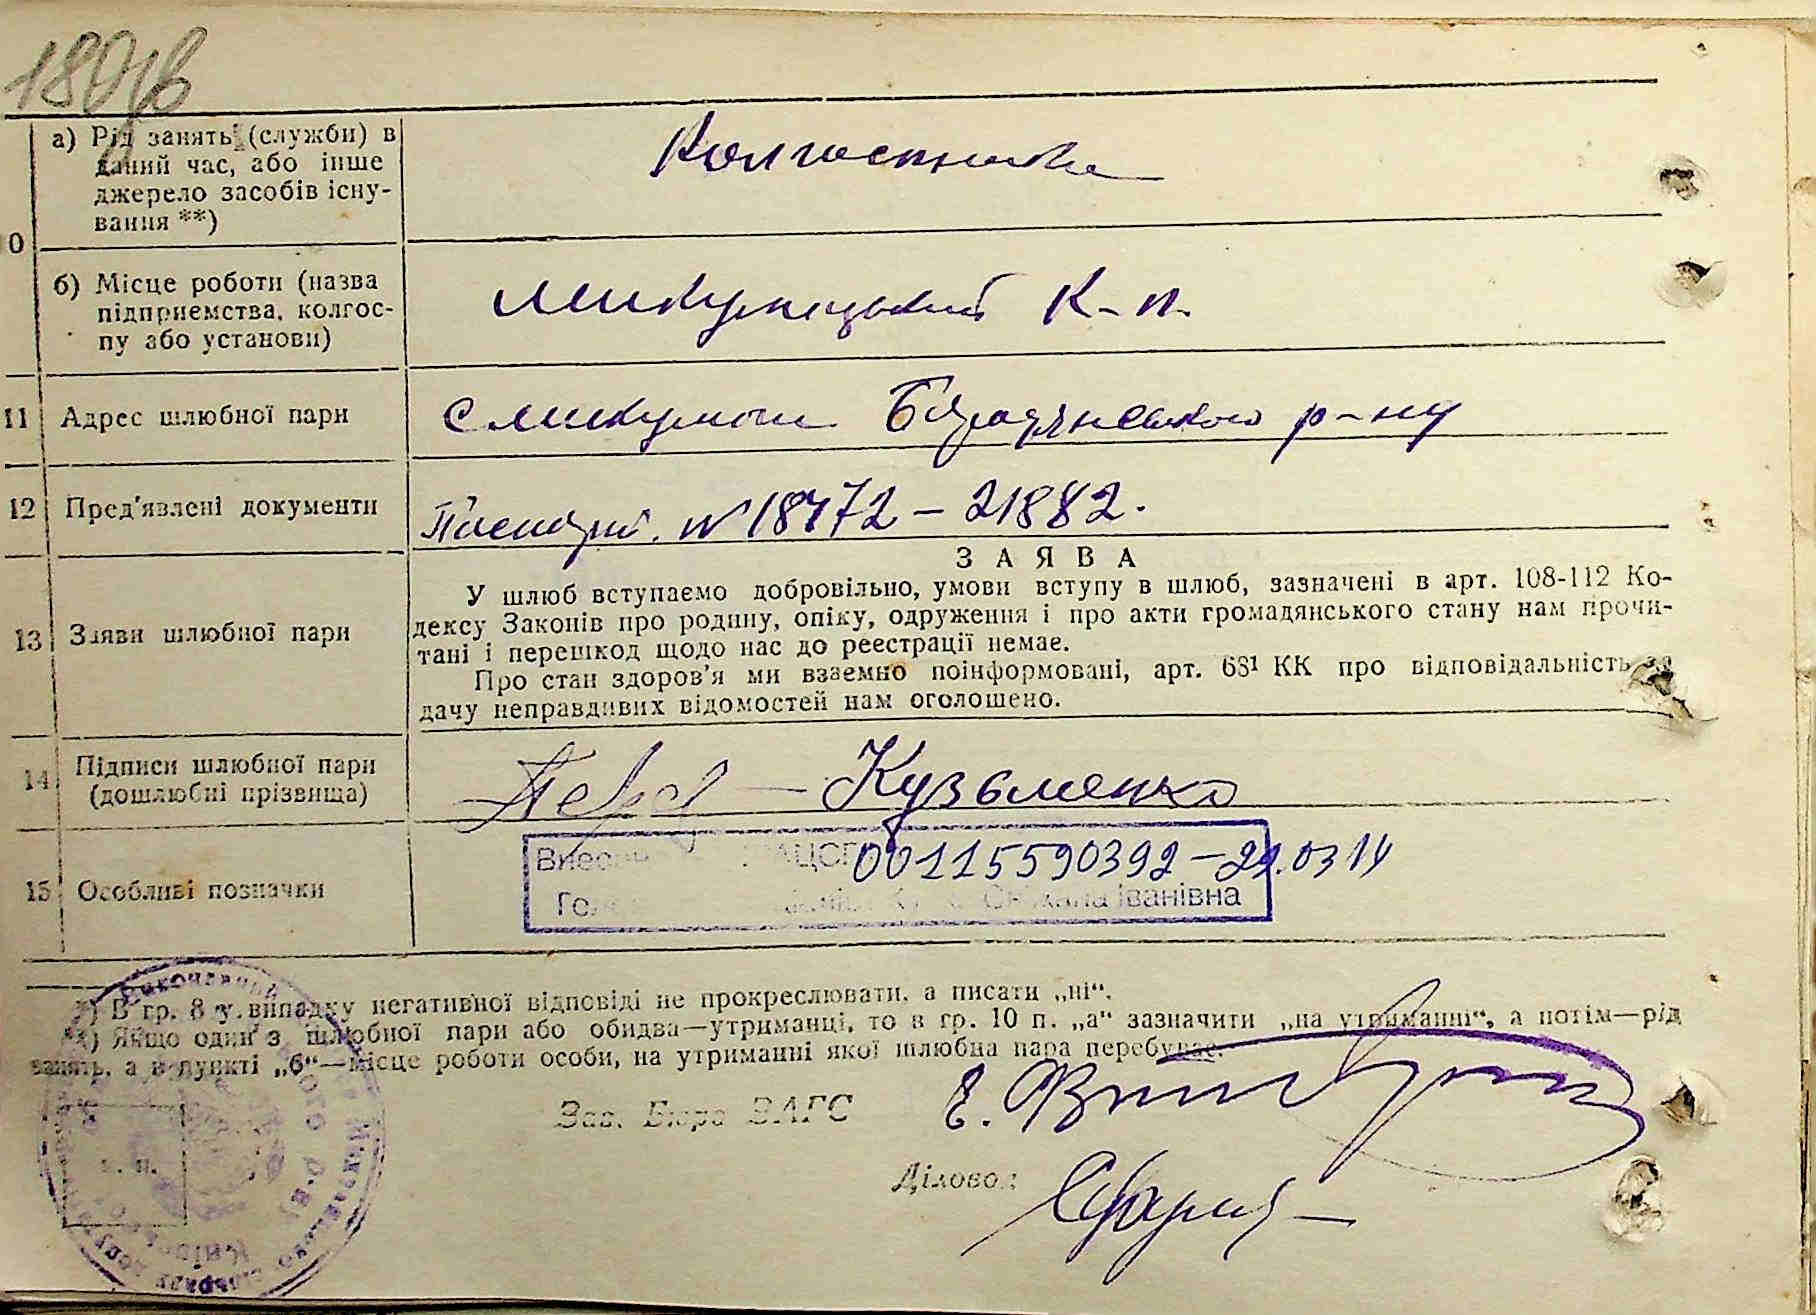 189
а) Рід занять (службн) в
даний час, або інше
джерело засобів існу-
вання **)
Колгоспники
0
б) Місце роботи (назва
підприємства, колгос-
пу або установи)
К-п.
11 Адрес шлюбної пари
с Микуличі Бородянського р-ну
12 Пред'явлені документи
Паспорти. № 18472 – 21882.
ЗАЯВА
13 Заяви шлюбної пари
У шлюб вступаємо добровільно, умови вступу в шлюб, зазначені в арт. 108-112 Ко-
дексу Законів про родину, опіку, одруження і про акти громадянського стану нам прочи-
тані і перешкод щодо нас до реєстрації немає.
Про стан здоров'я ми взаємно поінформовані, арт. 68¹ КК про відповідальність за
дачу неправдивих відомостей нам оголошено.
14 Підписи шлюбної пари
(дошлюбні прізвища)
Кузьменко
15 Особливі позначки
00115590392 – 29.03 14
Іванівна
*) В гр. 8 у випадку негативної відповіді не прокреслювати, а писати „ні“.
**) Якщо один з шлюбної пари або обидва—утриманці, то в гр. 10 п. „а“ зазначити „на утриманні“, а потім—рід
занять, а в пункті „б“—місце роботи особи, на утриманні якої шлюбна пара перебуває.
Зав. Бюро ЗАГС
Діловод: